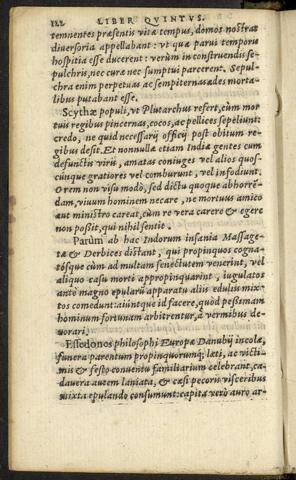 122 LIBER QVINTVS.
temnentes præsentis vitæ tempus, domos nostras
diuersoria appellabant: vt quæ parui temporis
hospitia esse ducerent: verùm in construendis se-
pulchris, nec curæ nec sumptui parcerent. Sepul-
chra enim perpetuas ac sempiternas ædes morta-
libus putabant esse.
Scythæ populi, vt Plutarchus refert, cùm mor
tuis regibus pincernas, cocos, ac pellices sepeliunt:
credo, ne quid necessarij officij post obitum re-
gibus desit. Et nonnullæ etiam Indiæ gentes cum
defunctis virii, amatas coniuges vel alios quos-
cúnque gratiores vel comburunt, vel infodiunt.
O rem non visu modò, sed dictu quoque abhorrē-
dam, viuum hominem necare, ne mortuus amico
aut ministro careat, cùm re vera carere & egere
non poßit, qui nihil sentit.
Parùm ab hac Indorum insania Massage-
tæ & Derbices distant, qui propinquos cogna-
tósque cùm ad multam senectutem venerint, vel
aliquo casu morti appropinquarint, iugulatos
ante magno epularū apparatu aliis edulis mix-
tos comedunt: aiúntque id facere, quòd peßimam
hominum fortunam arbitrentur, à vermibus de-
uorari.
Essedones philosophi Europæ Danubij incolæ,
funera parentum propinquorumq; læti, ac victi-
mis & festo conuentu familiarium celebrant, ca-
dauera autem laniata, & cæsi pecoris visceribus
mixta epulando consumunt: capita verò auro ar-